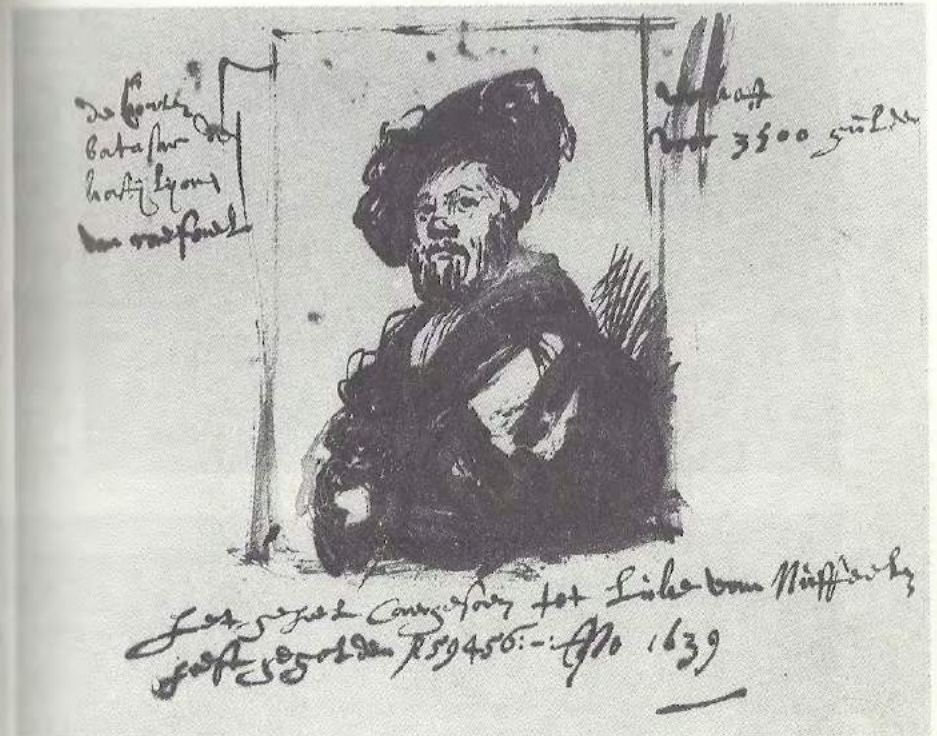 de Conte
batasar de
kastijlijone
van raefael
verkoft
voor 3500 gulden
het geheel Caergesoen tot Lukas van Nuffeelen
heeft gegolden f59456:-: Ano 1639